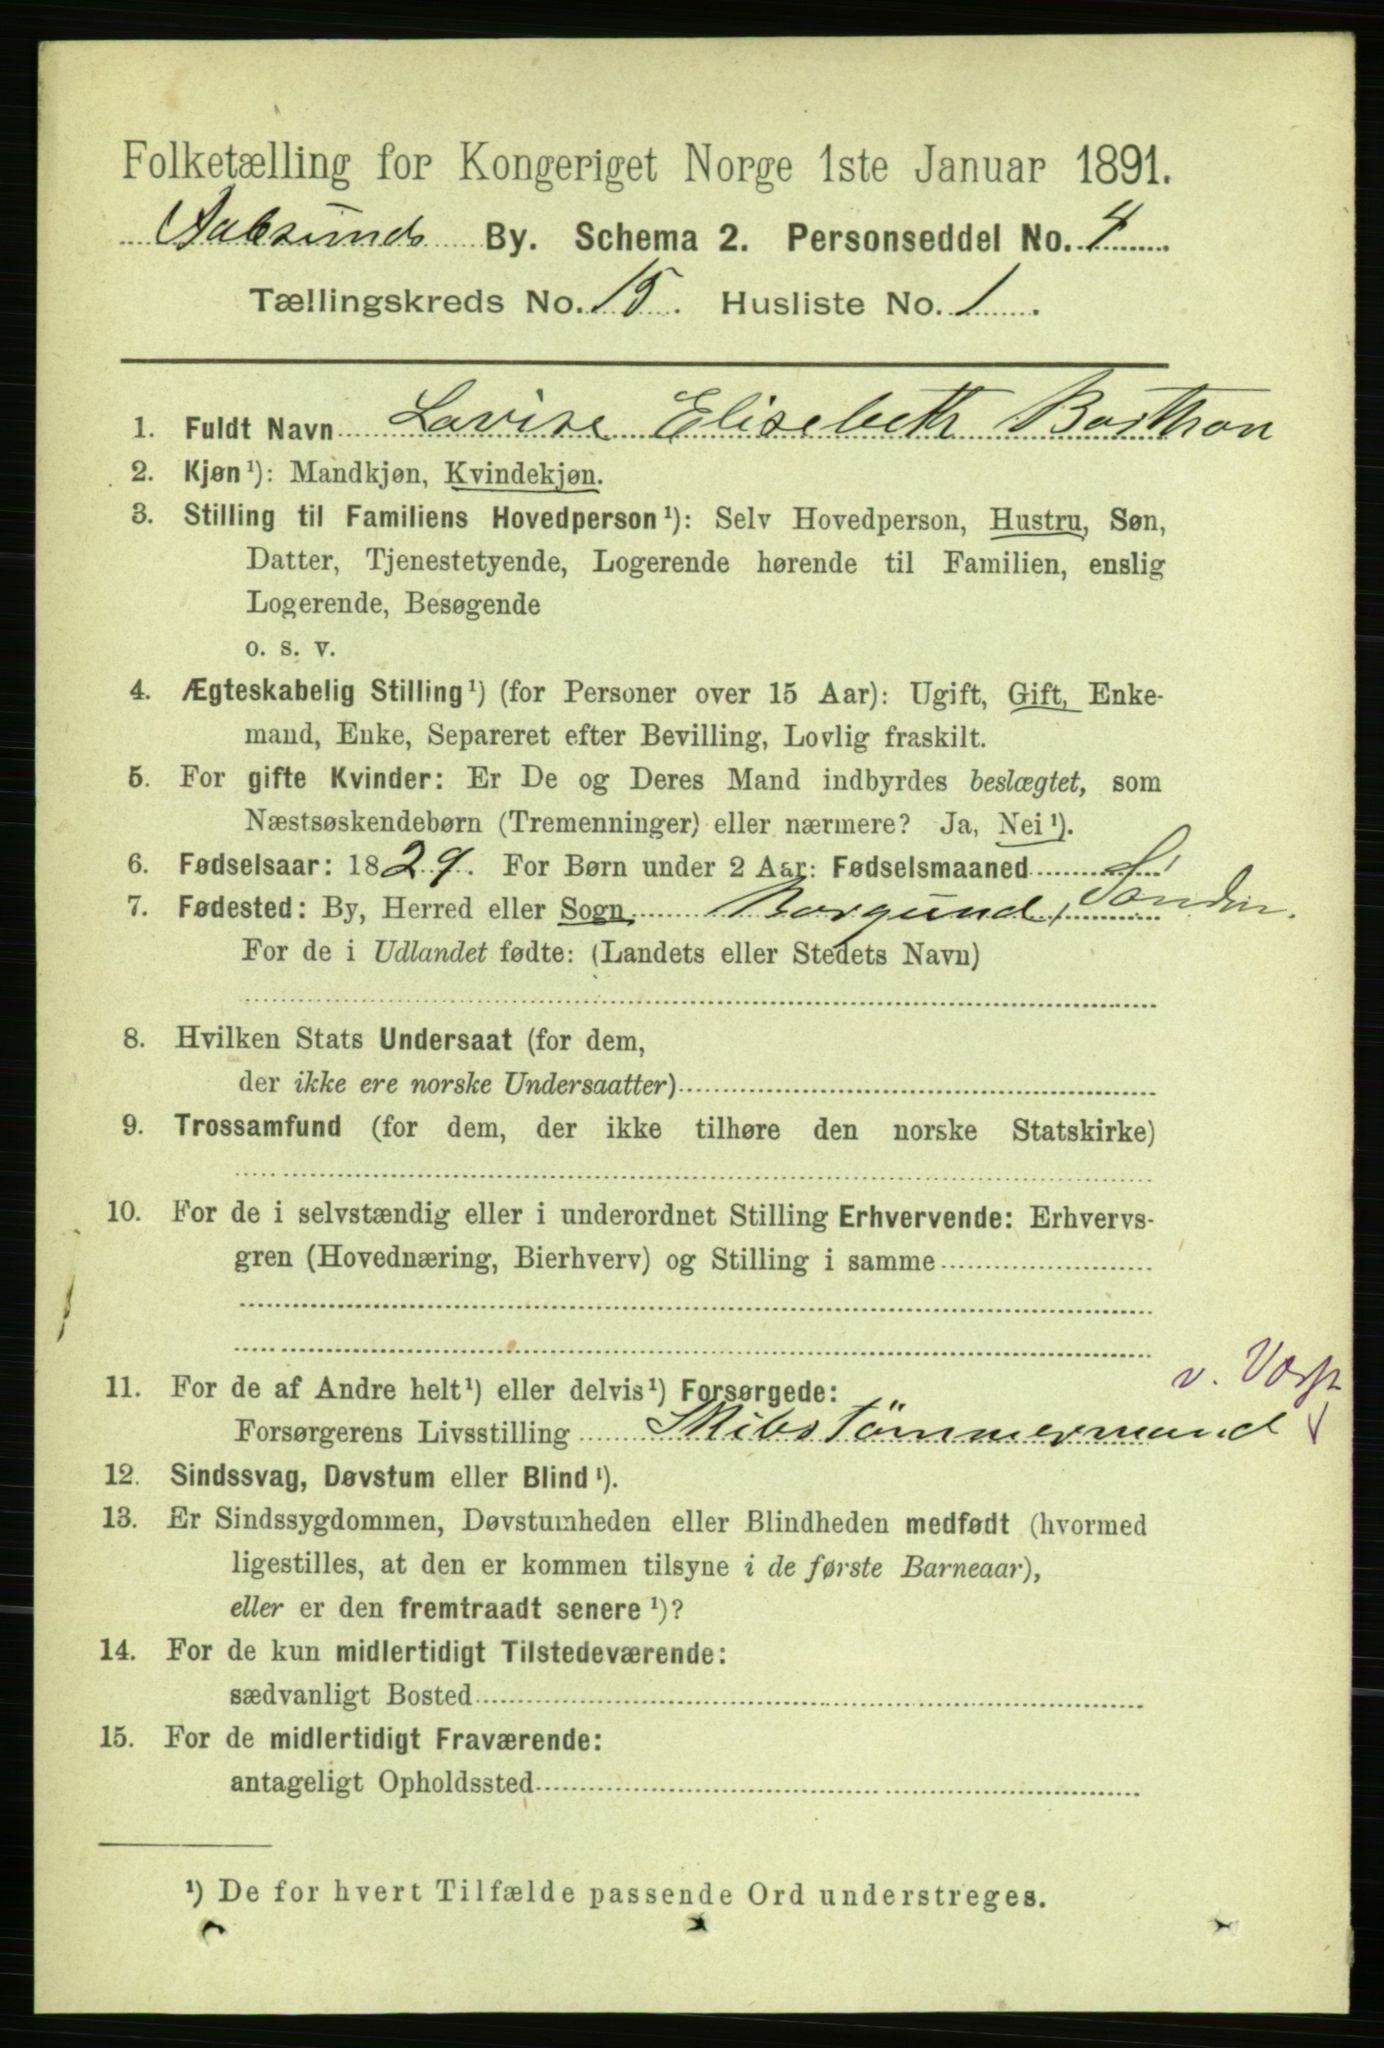 Folketælling for Kongeriget Norge 1ste Januar 1891.
Aalesunds By. Schema 2. Personseddel No. 4
Tællingskreds No. 15. Husliste No. 1.
1. Fuldt Navn Lovise Elisebeth
2. Kjøn¹): Mandkjøn, Kvindekjøn.
3. Stilling til Familiens Hovedperson¹): Selv Hovedperson, Hustru, Søn,
Datter, Tjenestetyende, Logerende hørende til Familien, enslig
Logerende, Besøgende
o. s. v.
4. Ægteskabelig Stilling¹) (for Personer over 15 Aar): Ugift, Gift, Enke-
mand, Enke, Separeret efter Bevilling, Lovlig fraskilt.
5. For gifte Kvinder: Er De og Deres Mand indbyrdes beslægtet, som
Næstsøskendebørn (Tremenninger) eller nærmere? Ja, Nei¹).
6. Fødselsaar: 1829. For Børn under 2 Aar: Fødselsmaaned
7. Fødested: By, Herred eller Sogn Borgund, Søndm.
For de i Udlandet fødte: (Landets eller Stedets Navn)
8. Hvilken Stats Undersaat (for dem,
der ikke ere norske Undersaatter)
9. Trossamfund (for dem, der ikke tilhøre den norske Statskirke)
10. For de i selvstændig eller i underordnet Stilling Erhvervende: Erhvervs-
gren (Hovednæring, Bierhverv) og Stilling i samme
v. Værft
11. For de af Andre helt¹) eller delvis¹) Forsørgede:
Forsørgerens Livsstilling Skibstömmermand
12. Sindssvag, Døvstum eller Blind¹).
13. Er Sindssygdommen, Døvstumheden eller Blindheden medfødt (hvormed
ligestilles, at den er kommen tilsyne i de første Barneaar),
eller er den fremtraadt senere¹)?
14. For de kun midlertidigt Tilstedeværende:
sædvanligt Bosted
15. For de midlertidigt Fraværende:
antageligt Opholdssted
¹) De for hvert Tilfælde passende Ord understreges.